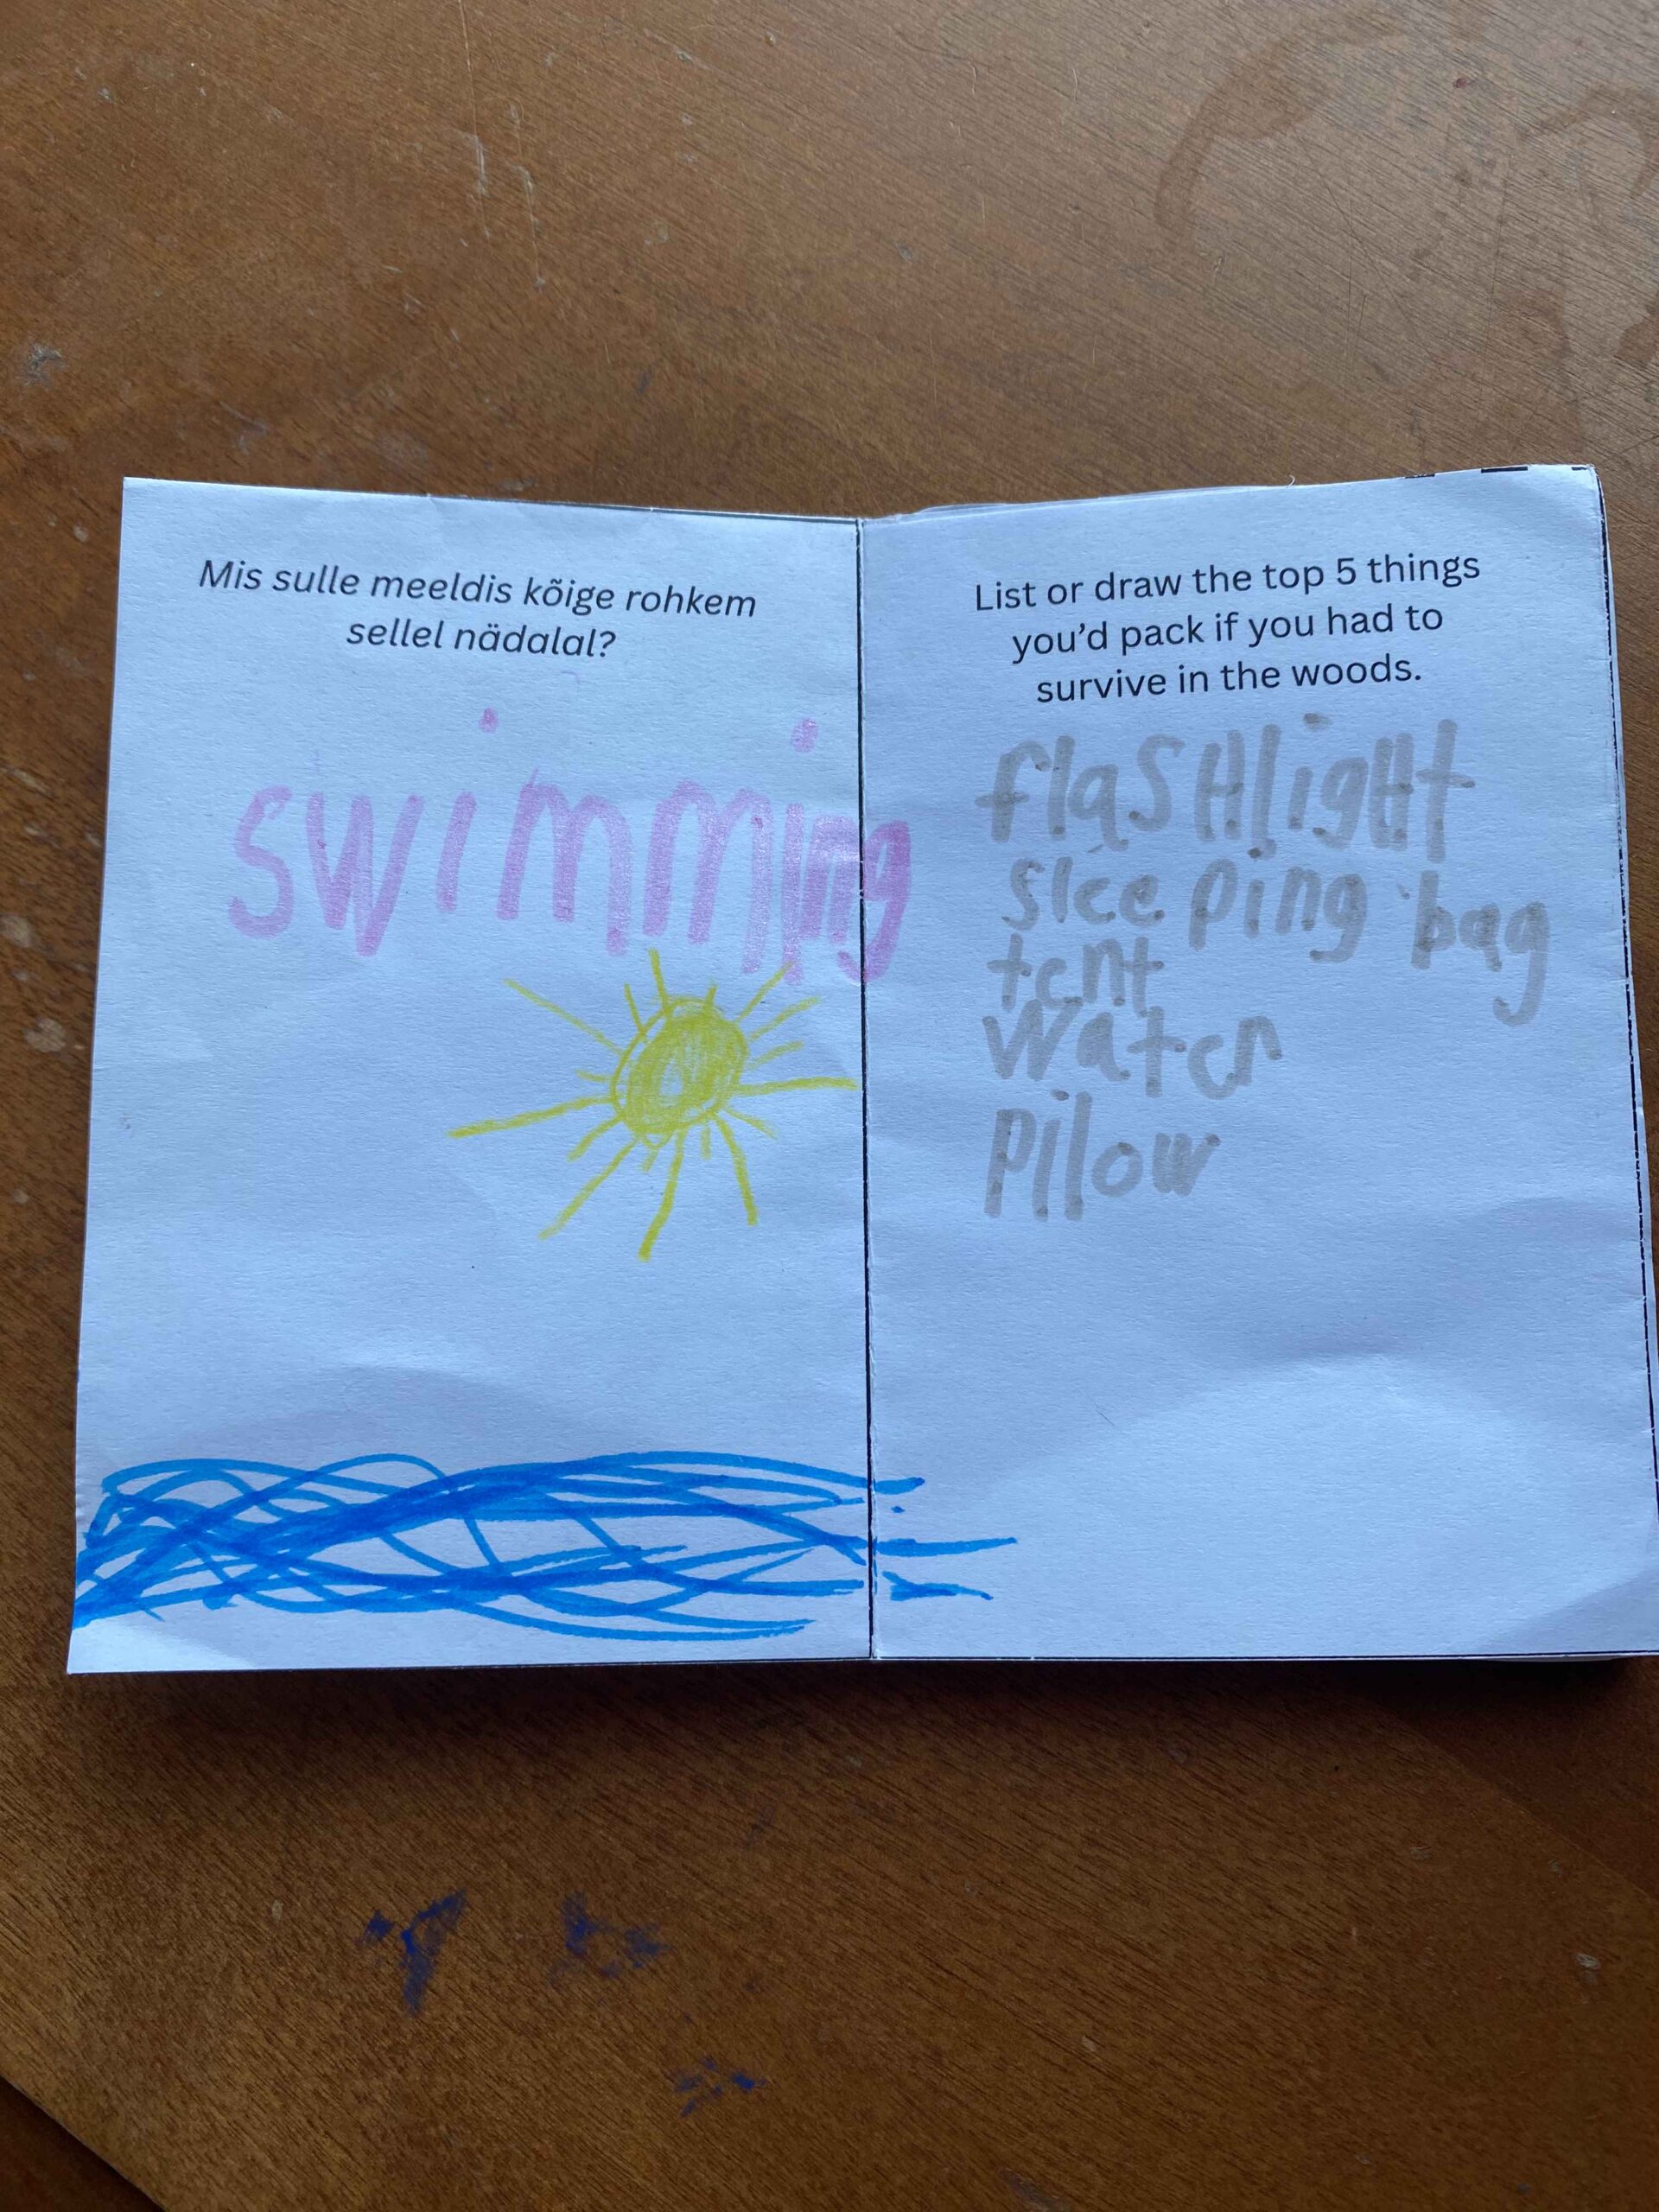 Mis sulle meeldis kõige rohkem
sellel nädalal?
swimming
List or draw the top 5 things
you'd pack if you had to
survive in the woods.
flasHligHt
sleeping bag
tent
water
pilow